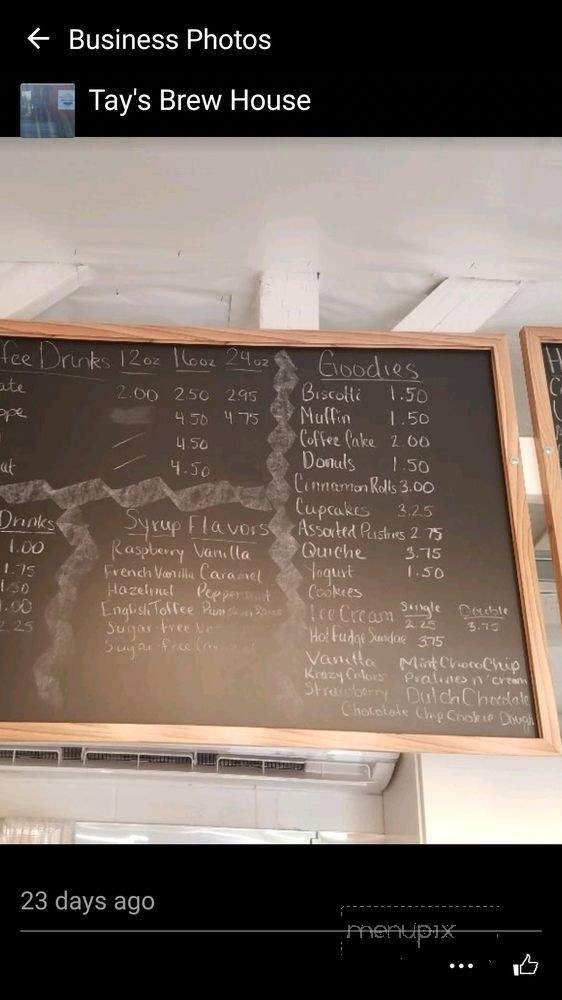 Business Photos
Tay's Brew House
fee Drinks 12oz 16oz 24oz
ate 2.00 2.50 2.95
ppe 4.50 4.75
4.50
at 4.50
Drinks
1.00
1.75
1.50
1.00
2.25
Syrup Flavors
Raspberry Vanilla
French Vanilla Caramel
Hazelnut Peppermint
English Toffee
Sugar-free
Sugar free
Goodies
Biscotti 1.50
Muffin 1.50
Coffee Cake 2.00
Donuts 1.50
Cinnamon Rolls 3.00
Cupcakes 3.25
Assorted Pastries 2.75
Quiche 3.75
Yogurt 1.50
Cookies
Ice Cream Single Double
2.25 3.75
Hot Fudge Sundae 3.75
Vanilla Mint Choco Chip
Krazy Colors Pralines n' cream
Strawberry Dutch Chocolate
Chocolate Chip Cookie Dough
H
23 days ago
menupix